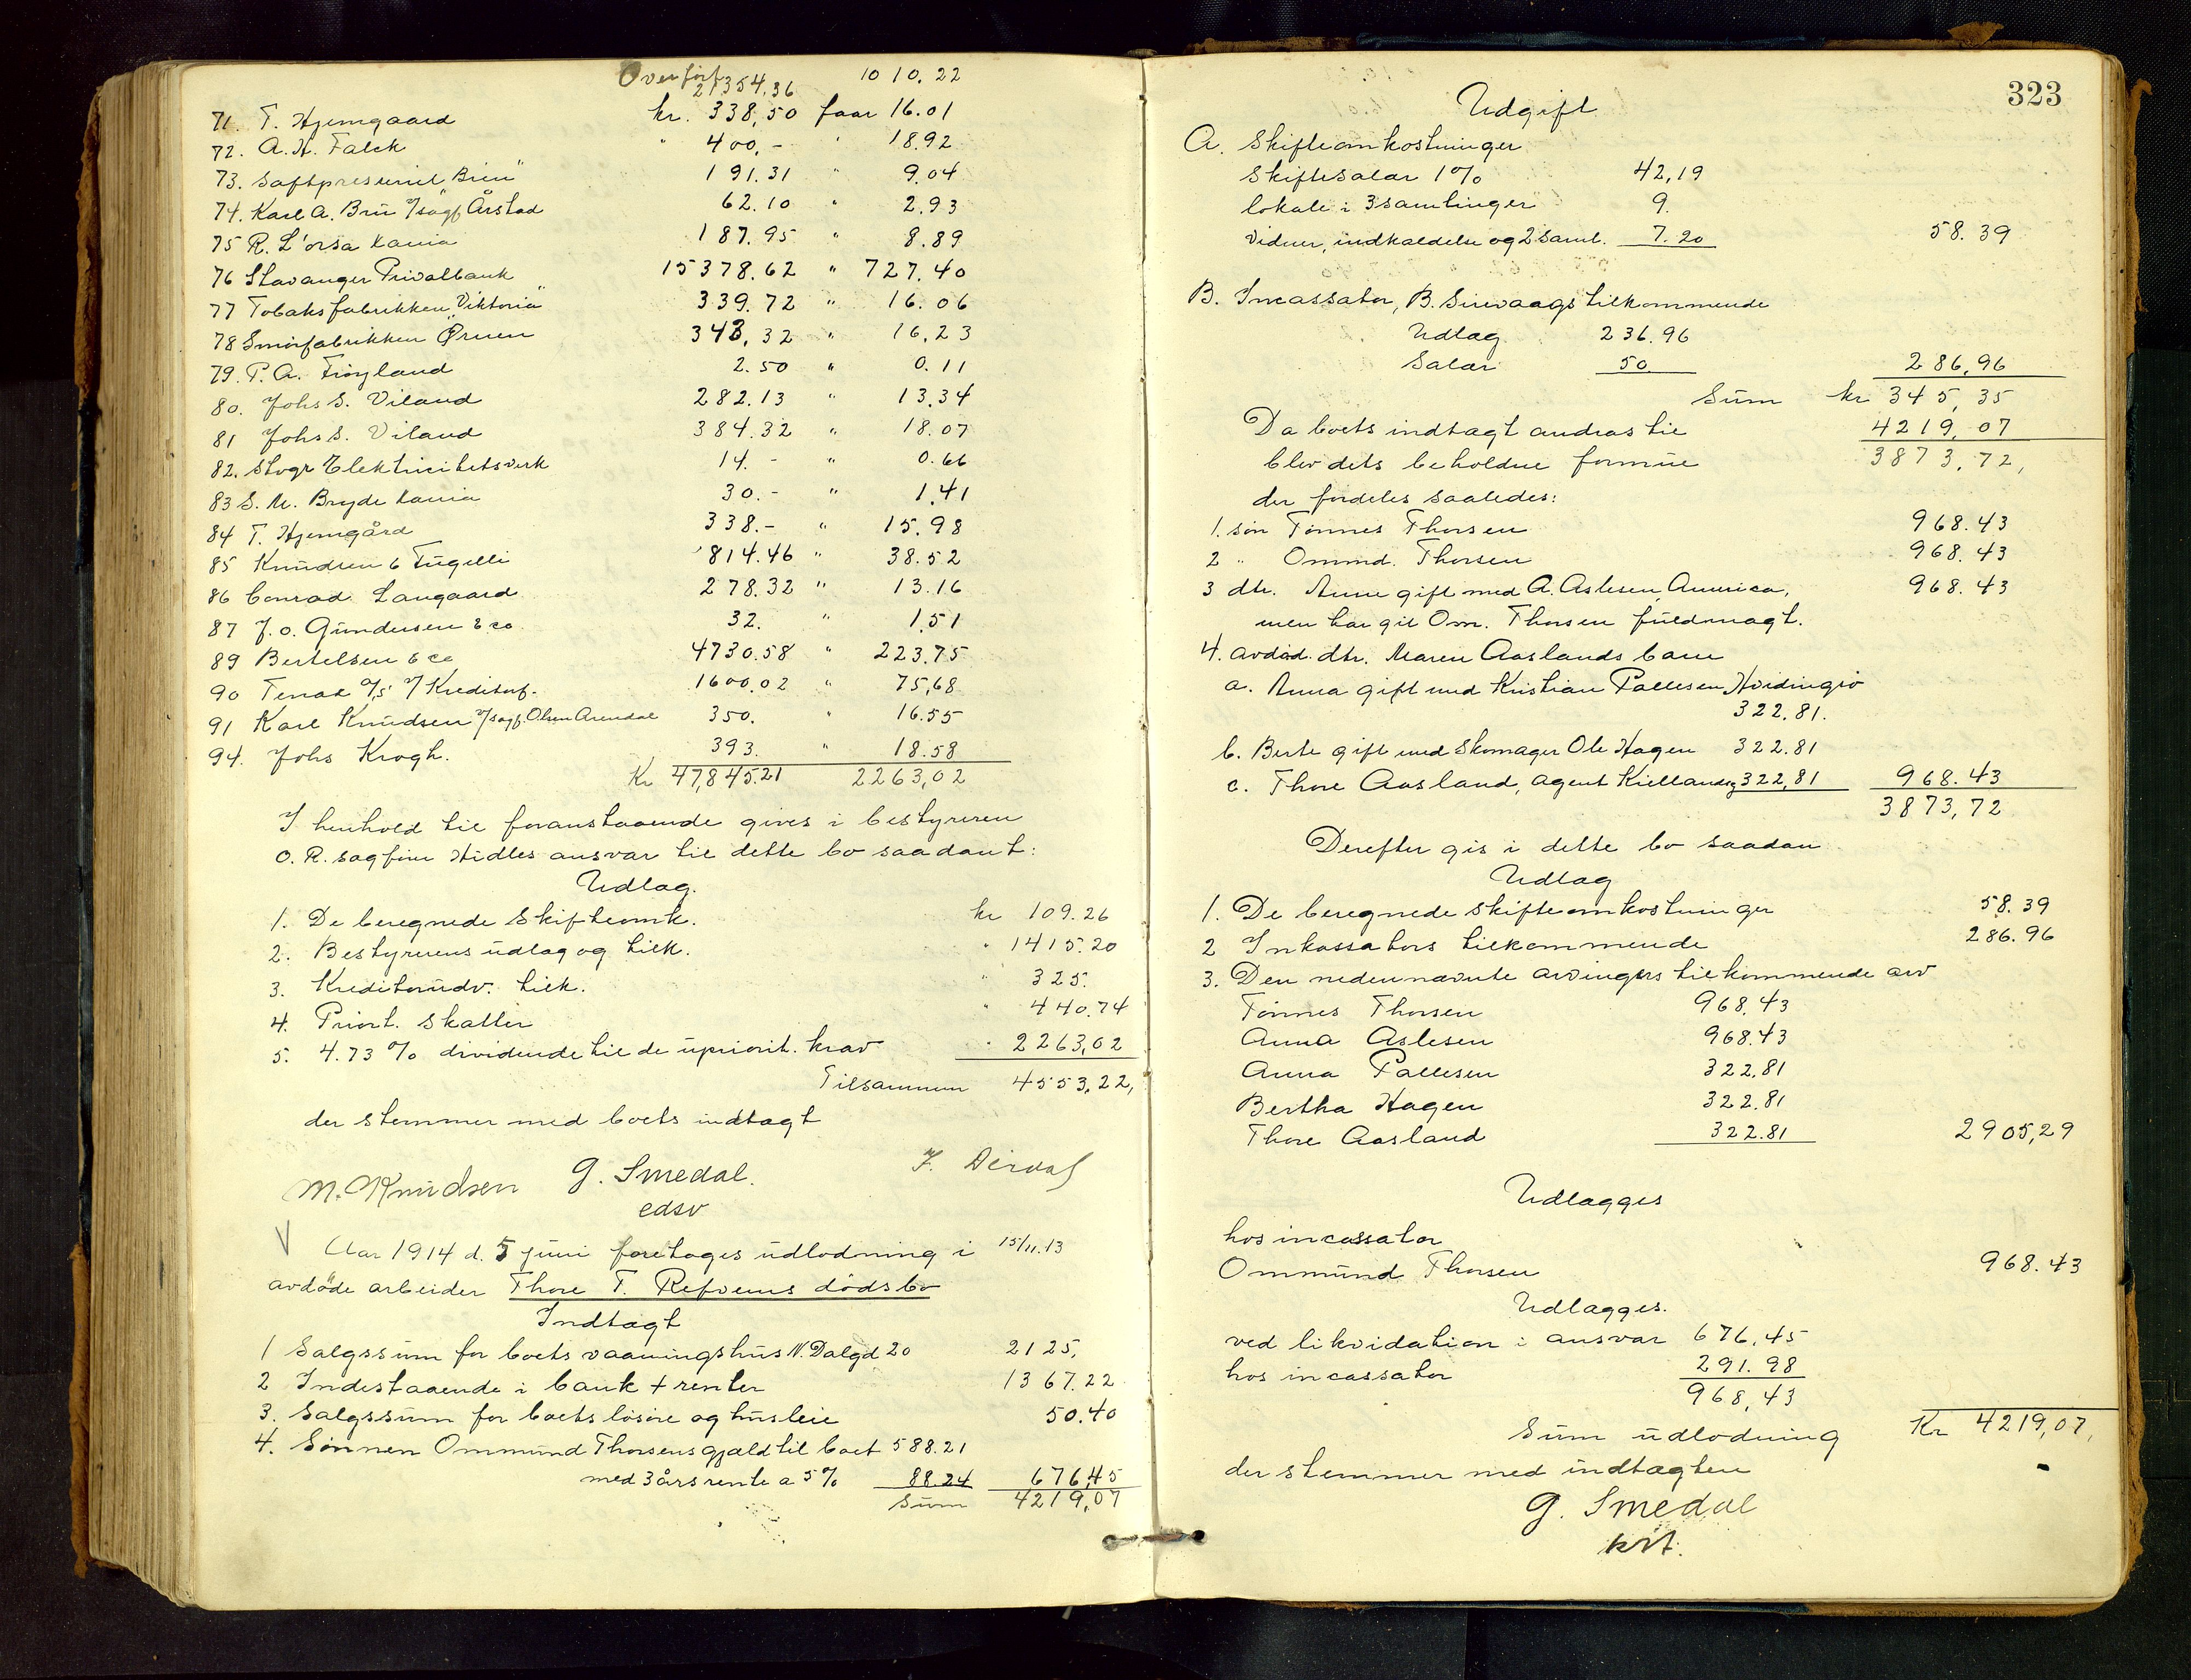 Overført 21354.36 1010.22
71. T. Hjemgaard kr. 338,50 faar 16.01
72. A. H. Falck " 400,- " 18.92
73. Saftpresseriet "Brin" 191.31 " 9.04
74. Karl A. Bru v/sagf Årstad 62.10 " 2.93
75 R. L'orsa Kania 187.95 " 8.89
76 Stavanger Privatbank 15378.62 " 727.40
77 Tobaksfabrikken "Viktoria" 339.72 " 16.06
78 Smörfabrikken Ørnen 343,32 " 16,23
79. P. A. Fröyland 2.50 " 0.11
80. Johs S. Viland 282.13 " 13.34
81 Johs S. Viland 384.32 " 18.07
82. Stvgr Elektricitetsverk 14.- " 0.66
83 S. M. Bryde Kania 30.- " 1.41
84 T. Hjemgård 338.- " 15.98
85 Knudsen & Fugelli 814.46 " 38.52
86 Conrad Langaard 278.32 " 13.16
87 J. O. Gundersen & co 32. " 1.51
89 Bertelsen & co 4730.58 " 223.75
90 Tenax A/S v/ Kreditorf. 1600.02 " 75,68
91 Karl Knudsen v/sagf. Olsen Arendal 350. " 16.55
94. Johs Krogh. 393. " 18.58
Kr 47,845.21 2263,02
I henhold til foranstaaende gives i bestyreren
O. R. sagfører Hidles ansvar til dette bo saadant:
Udlag.
1. De beregnede Skifteomk. kr 109.26
2. Bestyrerens udlag og tilk. " 1415.20
3. Kreditorudv. tilk. " 325.
4. Priorit. Skatter " 440.74
5. 4.73 % dividende til de upriorit. krav " 2263,02
Tilsammen 4553,22,
der stemmer med boets indtægt
M. Knudsen G. Smedal. edsv
V Aar 1914 d. 5 juni foretoges udlodning i 15/11.13
avdöde arbeider Thore T. Refvems dödsbo
Indtægt
1 Salgssum for boets vaaningshus N. Dalgd 20 2125,
2 Indestaaende i bank + renter 1367.22
3. Salgssum for boets lösöre og husleie 50.40
4. Sönnen Ommund Thorsens gjæld til boet 588.21
med 3 års rente a 5% 88.24 676,45
Sum 4219,07
323
Udgift
A. Skifteomkostninger
Skiftesalær 1% 42,19
lokale i 3 samlinger 9.
Vidner, indkaldelse og 2 saml. 7.20 58.39
B. Incassator, B. Sirevaags tilkommende
Udlag 236.96
Salær 50. 286,96
Sum kr 345,35
Da boets indtægt andrar til 4219,07
blev dets beholdne formue 3873,72,
der fordeles saaledes:
1. sön Tönnes Thorsen 968.43
2 " Ommd. Thorsen 968.43
3 dtr. Anne gift med A. Aslesen, America, 968.43
men har git Om. Thorsen fuldmagt.
4. avdöd. dtr. Maren Aaslands barn
a. Anna gift med Kristian Pallesen,
322.81.
b. Berte gift med Skomager Ole Hagen 322.81
c. Thore Aasland, agent Kiellandsg 322,81 968.43
3873,72
Derefter gis i dette bo saadan
Udlag
1. De beregnede skifteomkostninger 58.39
2 Inkassators tilkommende 286.96
3. Den nedennævnte arvingers tilkommende arv
Tönnes Thorsen 968,43
Anna Aslesen 968.43
Anna Pallesen 322.81
Bertha Hagen 322.81
Thore Aasland 322.81 2905,29
Udlægges
hos incassator
Ommund Thorsen 968.43
Udlægges.
ved likvidation i ansvar 676,45
hos incassator 291.98
968,43
Sum udlodning Kr 4219,07,
der stemmer med indtægten
G. Smedal
kst.